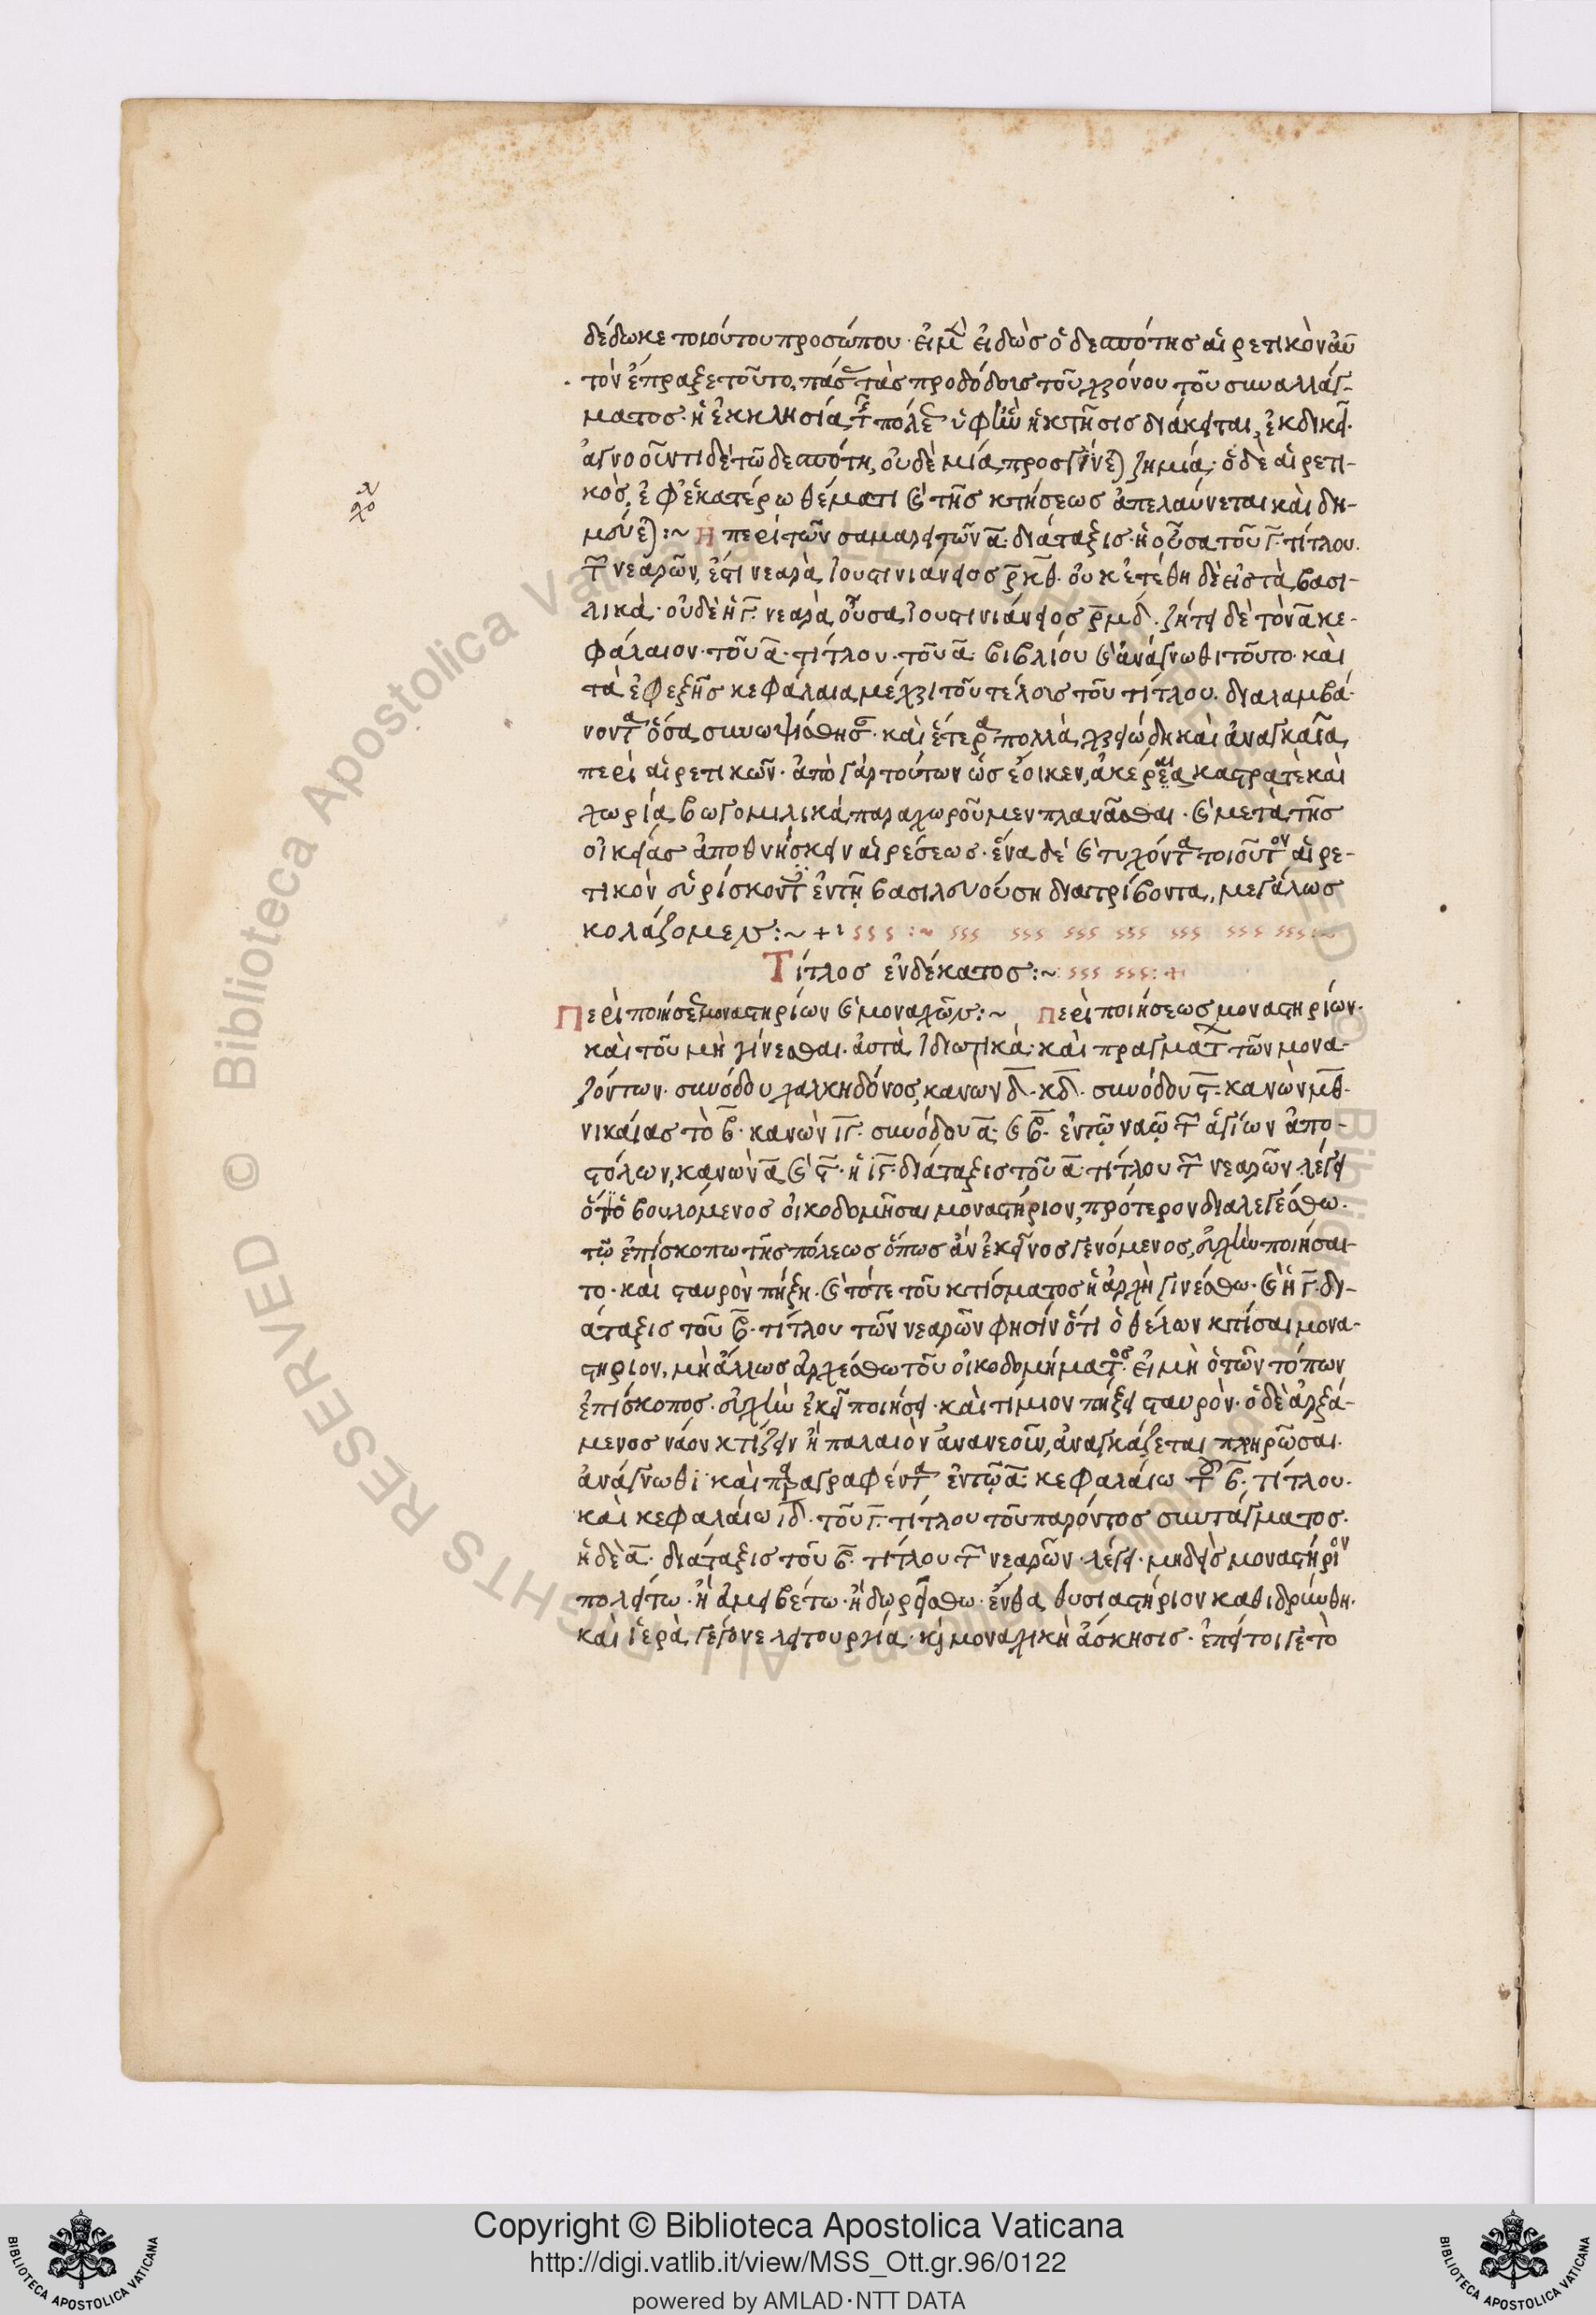 δέδωκε τοιούτου προσώπου· εἰ μὲν εἰδὼς ὁ δεσπότης αἱρετικὸν αὐ
τὸν ἔπραξε τοῦτο, πάσας τὰς προσόδους τοῦ χρόνου τοῦ συναλλάγ-
ματος· ἡ ἐκκλησία τῆς πόλεως ὑφ' ἣν ἡ κτῆσις διάκειται, ἐκδικεῖ·
ἀγνοοῦντι δὲ τῶ δεσπότη, οὐδὲ μία προσγίνεται ζημία· ὁ δὲ αἱρετι-
κὸς, ἐφ' ἑκατέρω θέματι καὶ τῆς κτήσεως ἀπελαύνεται καὶ δη-
μεύεται :~ Ἡ περὶ τῶν σαμαρειτῶν α διάταξις· ἡ οὖσα τοῦ γ τίτλου
τῶν νεαρῶν, ἐστὶ νεαρὰ Ἰουστινιάνειος ρκθ. οὐκ ἐτέθη δὲ εἰς τὰ βασι-
λικά· οὐδὲ ἡ γ νεαρὰ οὖσα Ἰουστινιάνειος ρμδ. ζήτει δὲ τὸν α κε-
φάλαιον· τοῦ α τίτλου· τοῦ α βιβλίου καὶ ἀνάγνωθι τοῦτο· καὶ
τὰ ἐφεξῆς κεφάλαια μέχρι τοῦ τέλους τοῦ τίτλου. διαλαμβά-
νοντα ὅσα συνωψίσθησαν· καὶ ἕτερα πολλὰ χρειώδη καὶ ἀναγκαῖα
περὶ αἱρετικῶν· ἀπὸ γὰρ τούτων ὡς ἔοικεν, ἀκέραια καστρα τὲ καὶ
χωρία βωγομιλικὰ παραχωροῦμεν πλανᾶσθαι· καὶ μετὰ τῆς
οἰκείας ἀποθνήσκειν αἱρέσεως· ἕνα δὲ καὶ τυχόντα τοιοῦτον αἱρε-
τικὸν εὑρίσκοντες ἐν τῇ βασιλευούση διατρίβοντα, μεγάλως
κολάζομεν :~ +
Τίτλος ἑνδέκατος :~
Περὶ ποιήσεως μοναστηρίων καὶ μοναχῶν :~ Περὶ ποιήσεως μοναστηρίων·
καὶ τοῦ μὴ γίνεσθαι αὐτὰ ἰδιωτικά· καὶ πραγμάτων τῶν μονα-
ζόντων· συνόδου χαλκηδόνος, κανὼν δ· κδ· συνόδου ς· κανὼν μθ·
νικαίας τὸ β· κανὼν ιγ· συνόδου α καὶ β· ἐν τῷ ναῷ τῶν ἁγίων ἀπο-
στόλων, κανὼν α καὶ ς· ἡ ιγ διάταξις τοῦ α τίτλου τῶν νεαρῶν λέγει
ὅτι ὁ βουλόμενος οἰκοδομῆσαι μοναστήριον, πρότερον διαλεγέσθω
τῷ ἐπίσκοπω τῆς πόλεως ὅπως ἂν ἐκεῖνος γενόμενος, εὐχὴν ποιήσαι-
το· καὶ σταυρὸν πήξη· καὶ τότε τοῦ κτίσματος ἡ ἀρχὴ γινέσθω· καὶ ἡ γ δι-
άταξις τοῦ β· τίτλου τῶν νεαρῶν φησὶν ὅτι ὁ θέλων κτίσαι μονα-
στηριον, μὴ ἄλλως ἀρχέσθω τοῦ οἰκοδομήματος· εἰ μὴ ὁ τῶν τόπων
ἐπίσκοπος· εὐχὴν ἐκεῖ ποιήσει· καὶ τίμιον πήξει σταυρὸν· ὁ δὲ ἀρξά-
μενος νάον κτίζειν ἢ παλαιὸν ἀνανεοῦν, ἀναγκάζεται πληρῶσαι.
ἀνάγνωθι· καὶ παραγραφέντα ἐν τῷ α κεφαλαίω τοῦ β· τίτλου·
καὶ κεφαλαίω ιδ· τοῦ γ· τίτλου τοῦ παρόντος συντάγματος·
ἡ δὲ α· διάταξις τοῦ β· τίτλου τῶν νεαρῶν λέγει· μηδεὶς μοναστήριον
πολείτω· ἢ ἀμειβέτω· ἢ δωρείσθω· ἔνθα θυσιαστήριον καθιδρύνθη·
καὶ ἱερὰ γέγονε λειτουργία· καὶ μοναχικὴ ἄσκησις· ἐπείτοιγε τὸ
Copyright © Biblioteca Apostolica Vaticana
http://digi.vatlib.it/view/MSS_Ott.gr.96/0122
powered by AMLAD·NTT DATA